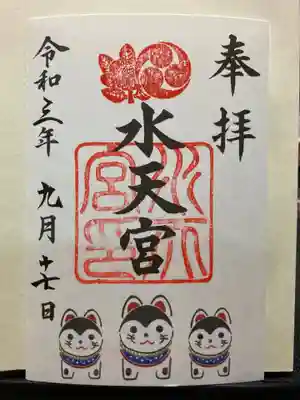 奉拝
水天宮
水天宮印
令和三年 九月十七日